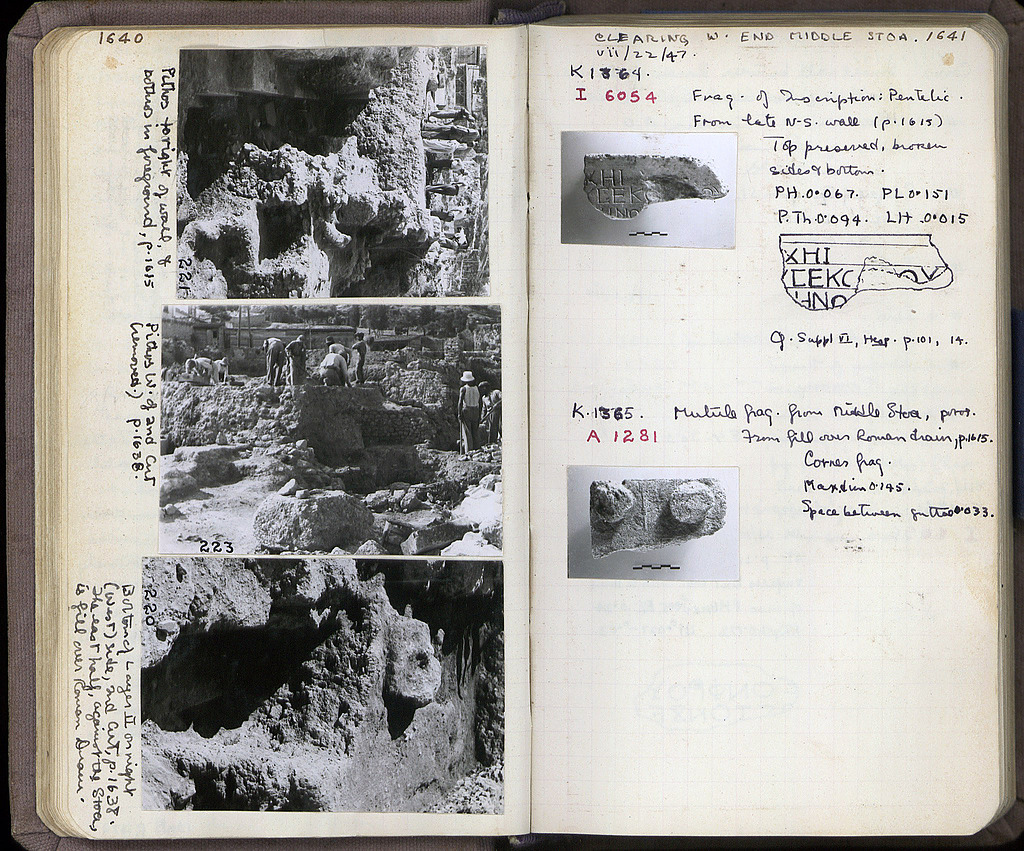 1640
Pithos to right of wall, &
bothros in foreground, p.1615
221
Pithos W. of 2nd Cut
(removed.) p.1638.
223
Bottom of Layer II on right
(West) side, 2nd Cut, p.1638.
The east half, against the Stoa,
is fill over Roman Drain.
220
CLEARING W. END MIDDLE STOA. 1641
VII/22/47.
K 1364.
I 6054 Frag. of Inscription: Pentelic.
From late N-S. wall (p.1615)
Top preserved, broken
sides & bottom.
P.H. 0.067. P.L. 0.151
P.Th. 0.094. LH. 0.015
ΧΗΙ
ΕΚ
ΗΝΟ
ΧΗΙ
ΕΚ
ΗΝΟ
Cf. Suppl VI, Hesp. p.101, 14.
K.1365. Mutule frag. from Middle Stoa, poros.
A 1281 From fill over Roman drain, p.1615.
Corner frag.
Max dim 0.145.
Space between guttae 0.033.